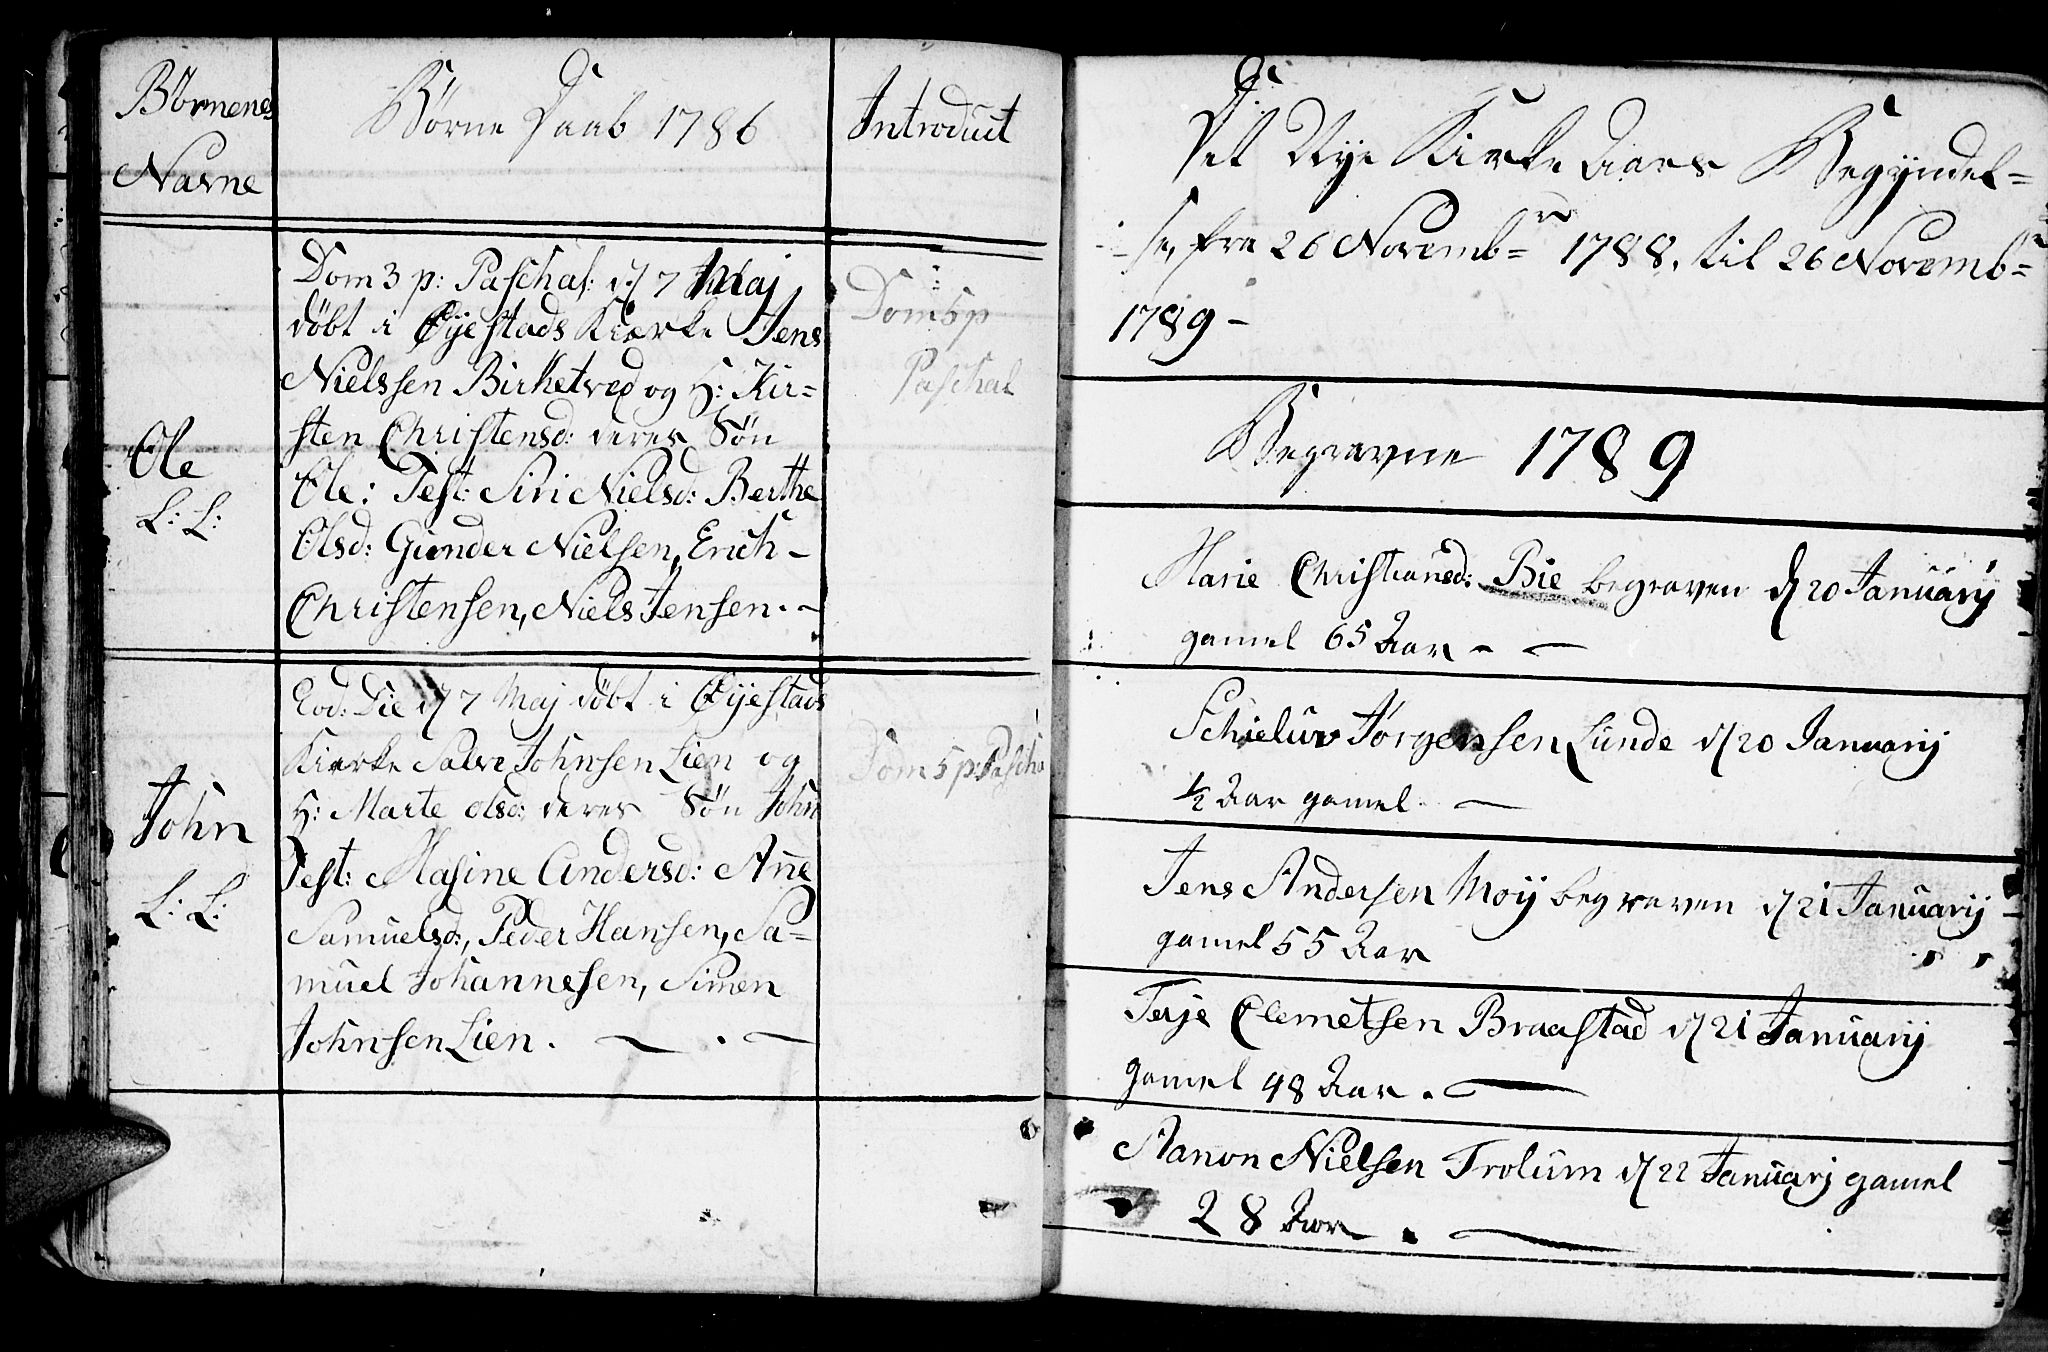 Børnenes
Navne
Børne Daab 1786
Introduct
Dom 3 p: Paschal: d 7 Maj
døbt i Øyestads Kierke Jens
Nielssen Birketved og H: Kir=
sten Christensd: deres Søn
Ole: Test: Siri Nielsd: Berthe
Olsd: Gunder Nielsen, Erich
Christensen, Niels Jensen. -
Ole
L: L:
Dom 5 p
Paschal
Eod: Die d 7 Maj døbt i Øyestads
Kierke Salve Johnsen Lien og
H: Marte Olsd: deres Søn John
Test: Masine Andersd: Ane
Samuelsd:, Peder Hansen, Sa=
muel Johannesen, Simen
Johnsen Lien. - . -
John
L: L:
Dom 5 p: Pascha
Det Nye Kirke Aars Begyndel=
se, fra 26 Novemb=r 1788. til 26 Novemb=r
1789 -
Begravne 1789
Marie Christiansd: Bie begraven d 20 January
gamel 65 Aar - -
Schieluv Jørgensen Lunde d 20 January
½ Aar gamel. -
Jens Andersen Moy begraven d 21 January
gamel 55 Aar
Terje Clemetsen Braastad d 21 January
gamel 48 Aar . -
Aanon Nielsen Trolum d 22 January gamel
28 Aar . -